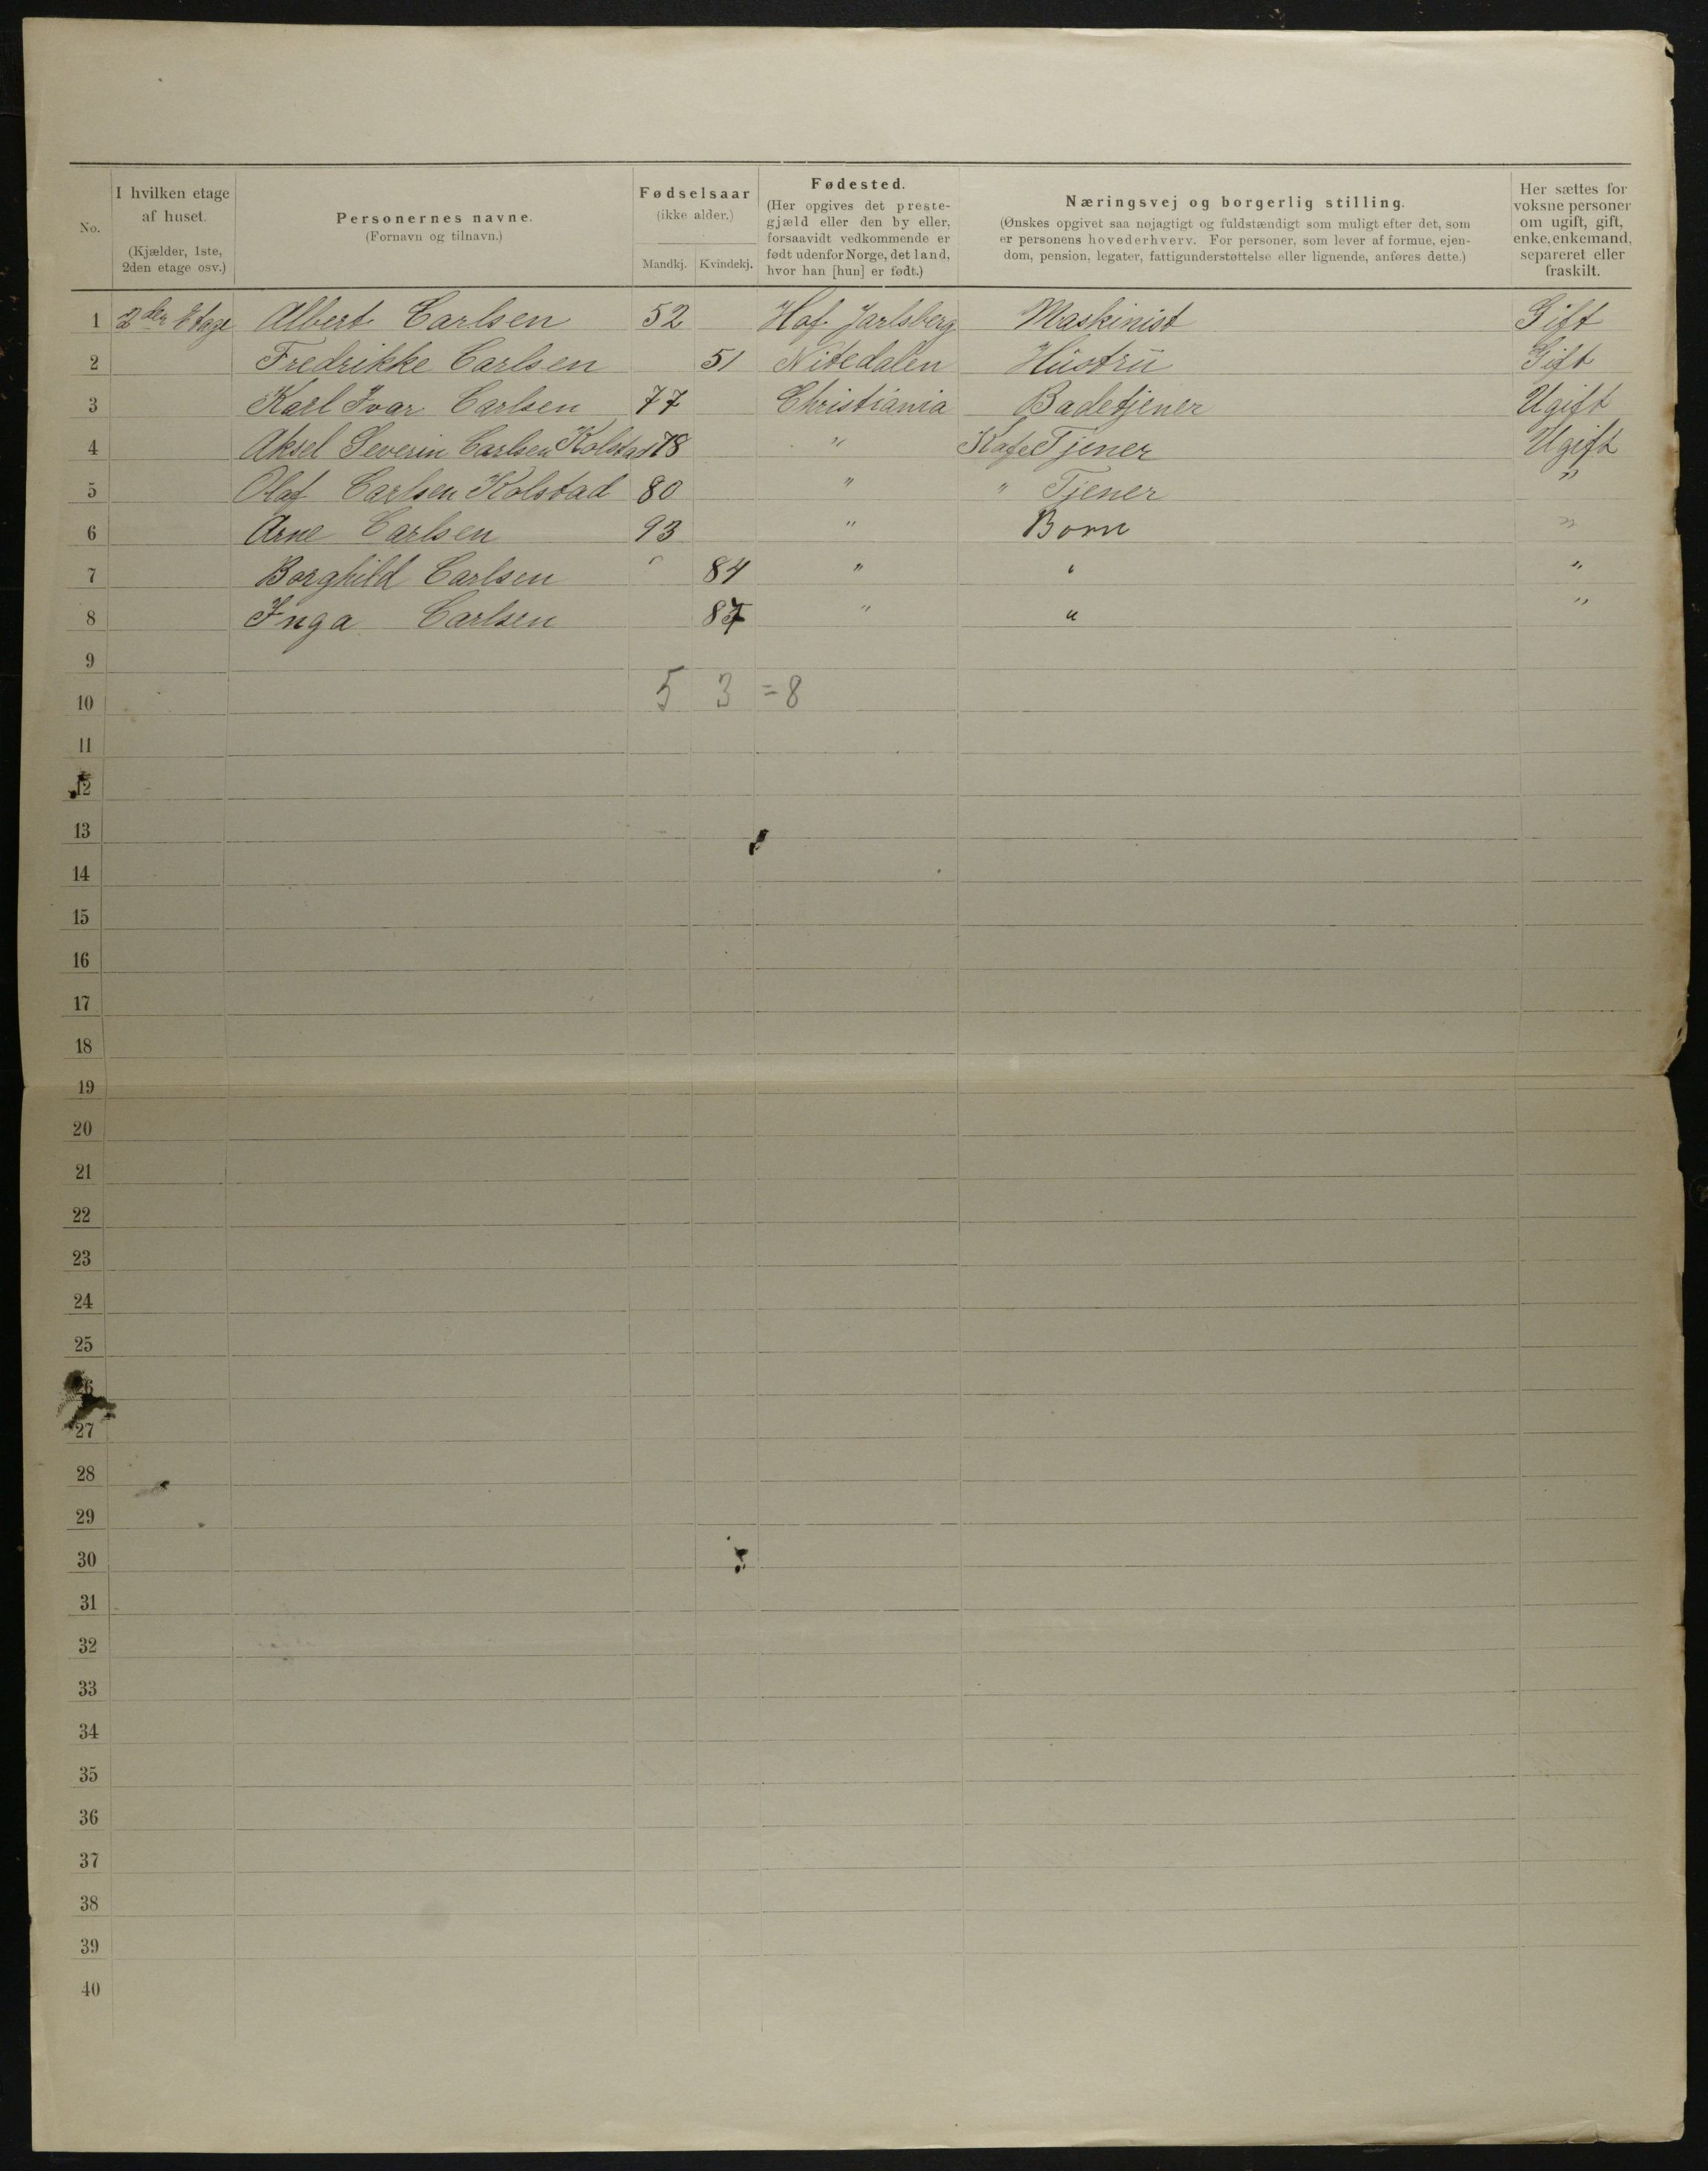 No.
I hvilken etage af huset.
(Kjælder, 1ste, 2den etage osv.)
Personernes navne.
(Fornavn og tilnavn.)
Fødselsaar
(ikke alder.)
Mandkj. Kvindekj.
Fødested.
(Her opgives det preste-
gjæld eller den by eller,
forsaavidt vedkommende er
født udenfor Norge, det land,
hvor han [hun] er født.)
Næringsvej og borgerlig stilling.
(Ønskes opgivet saa nøjagtigt og fuldstændigt som muligt efter det, som
er personens hovederhverv. For personer, som lever af formue, ejen-
dom, pension, legater, fattigunderstøttelse eller lignende, anføres dette.)
Her sættes for
voksne personer
om ugift, gift,
enke, enkemand,
separeret eller
fraskilt.
1 2den Etage Albert Carlsen 52 Hof Jarlsberg Maskinist Gift
2 Fredrikke Carlsen 51 Nitedalen Hustru Gift
3 Karl Ivar Carlsen 77 Christiania Badetjener Ugift
4 Aksel Severin Carlsen Kolstad 78 " Kafe Tjener Ugift
5 Olaf Carlsen Kolstad 80 " " Tjener "
6 Arne Carlsen 93 " Born "
7 Borghild Carlsen 84 " " "
8 Inga Carlsen 87 " " "
9
10 5 3 = 8
11
12
13
14
15
16
17
18
19
20
21
22
23
24
25
26
27
28
29
30
31
32
33
34
35
36
37
38
39
40